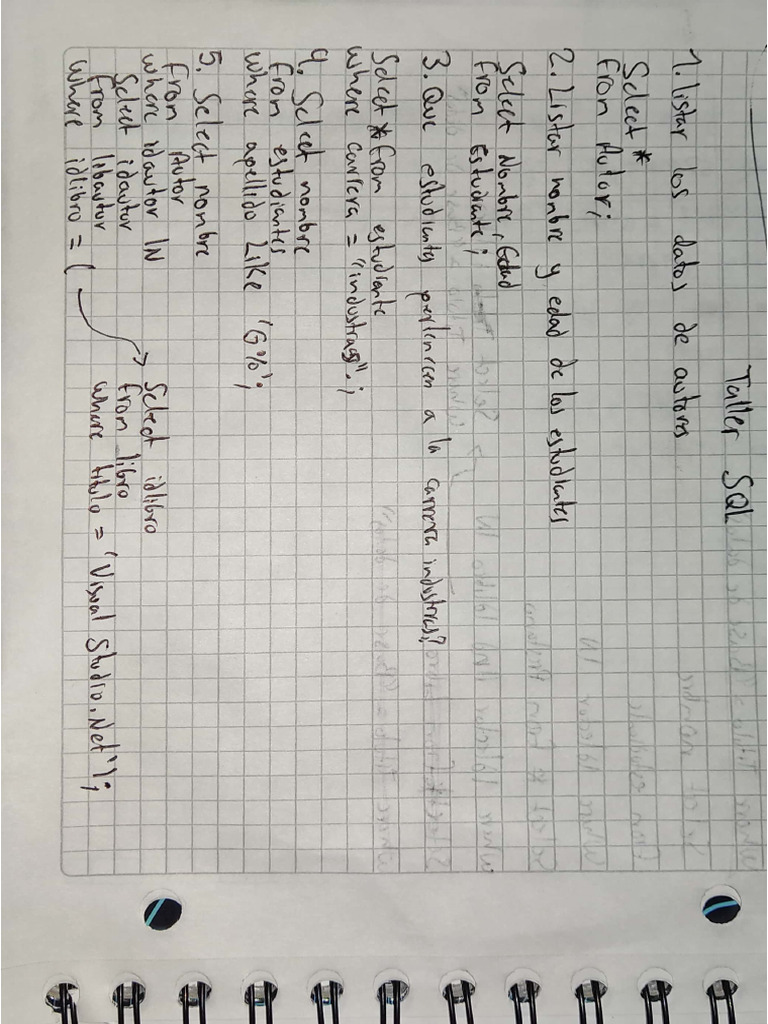 Taller SQL
1. listar los datos de autores
Select *
from Autor;
2. Listar nombre y edad de los estudiantes
Select Nombre, Edad
from Estudiante;
3. Que estudiantes pertenecen a la carrera industrias?
Select * from estudiante
where carrera = "industrias".;
4. Select nombre
from estudiantes
where apellido Like 'G%';
5. Select nombre
from Autor
where idautor IN
Select idautor
from libautor
where idlibro = (
Select idlibro
from libro
where titulo = 'Visual Studio.Net');